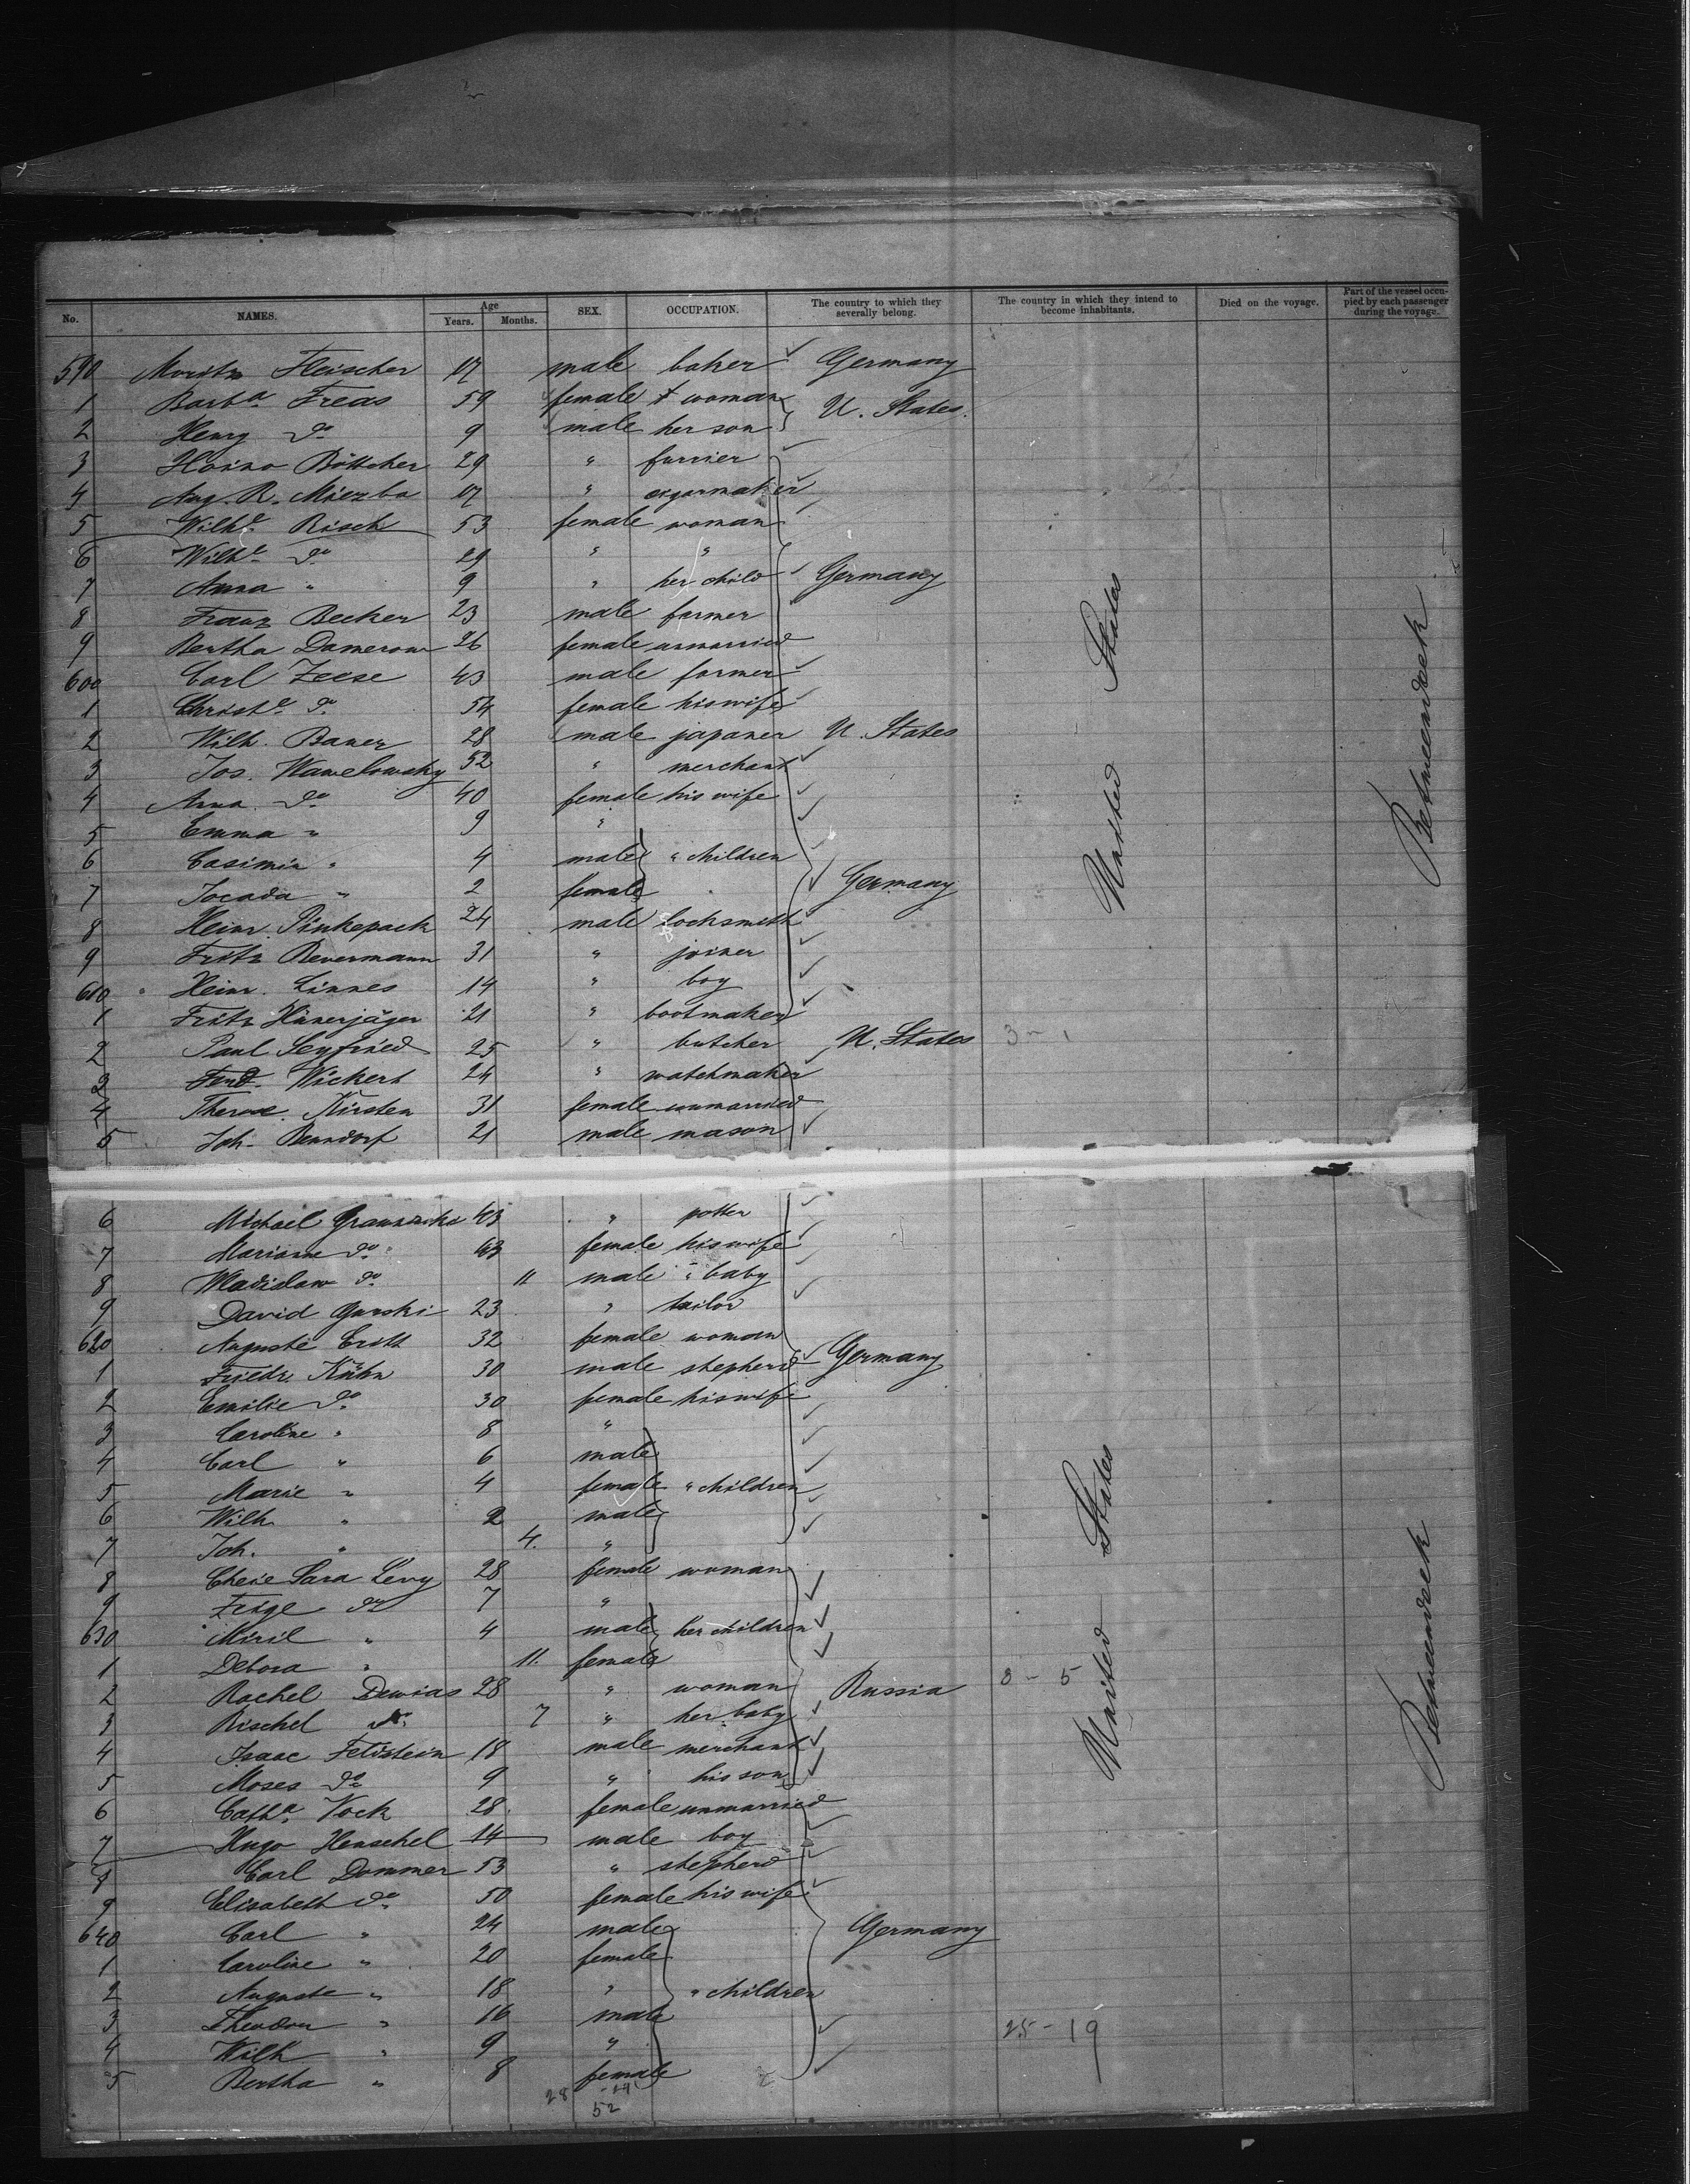 No. NAMES. Age Years. Months. SEX. OCCUPATION. The country to which they severally belong. The country in which they intend to become inhabitants. Died on the voyage. Part of the vessel occupied by each passenger during the voyage.
590 Moritz Fleischer 17 male baker Germany
1 Barba Freas 59 female woman U. States.
2 Henry do 9 male her son
3 Heino Böttcher 29 " furrier
4 Aug. R. Miezba 17 " cigarmaker
5 Wilhe Risch 53 female woman
6 Wilhe do 29 " "
7 Anna " 9 " her child Germany
8 Franz Becker 23 male farmer
9 Bertha Damerow 26 female unmarried
600 Carl Zeese 43 male farmer
1 Christe do 54 female his wife
2 Wilh. Bauer 28 male japaner U. States
3 Jos. Wawelowsky 52 " merchant
4 Anna do 40 female his wife
5 Emma " 9 "
6 Casimir " 4 male " children
7 Jocada " 2 female Germany
8 Heinr. Pinkepack 24 male locksmith
9 Fritz Bevermann 31 " joiner
610 Heinr. Linnes 14 " boy
1 Fritz Hünerjäger 21 " bootmaker
2 Paul Seyfried 25 " butcher U. States 3 - 1
3 Ferd. Wickert 24 " watchmaker
4 Therese Kirsten 31 female unmarried
5 Joh. Benndorf 21 male mason
United States
Betweendeck
6 Michael 43 " potter
7 Mariane do 43 female his wife
8 Wladislaw do 11 male " baby
9 David Gurski 23 " tailor
620 Auguste Eritt 32 female woman
1 Friedr. Kühn 30 male shepherd Germany
2 Emilie do 30 female his wife
3 Caroline " 8 "
4 Carl " 6 male
5 Marie " 4 female " children
6 Wilh " 2 male
7 Joh. " 4. "
8 Cheie Sara Levy 28 female woman
9 Feige do 7 "
630 Miril " 4 male her children
1 Debora " 11. female
2 Rachel Dewias 28 " woman Russia 3 - 5
3 Rischel do 7 " her baby
4 Isaac Feldstein 18 male merchant
5 Moses do 9 " his son
6 Catha Vock 28. female unmarried
7 Hugo Henschel 14 male boy
8 Carl Dommer 53 " shepherd
9 Elisabeth do 50 female his wife
640 Carl " 24 male Germany
1 Caroline " 20 female
2 Auguste " 18 " " children
3 Theodor " 16 male
4 Wilh " 9 " 25 - 19
5 Bertha " 8 female
28 - 24
52
United States
Betweendeck